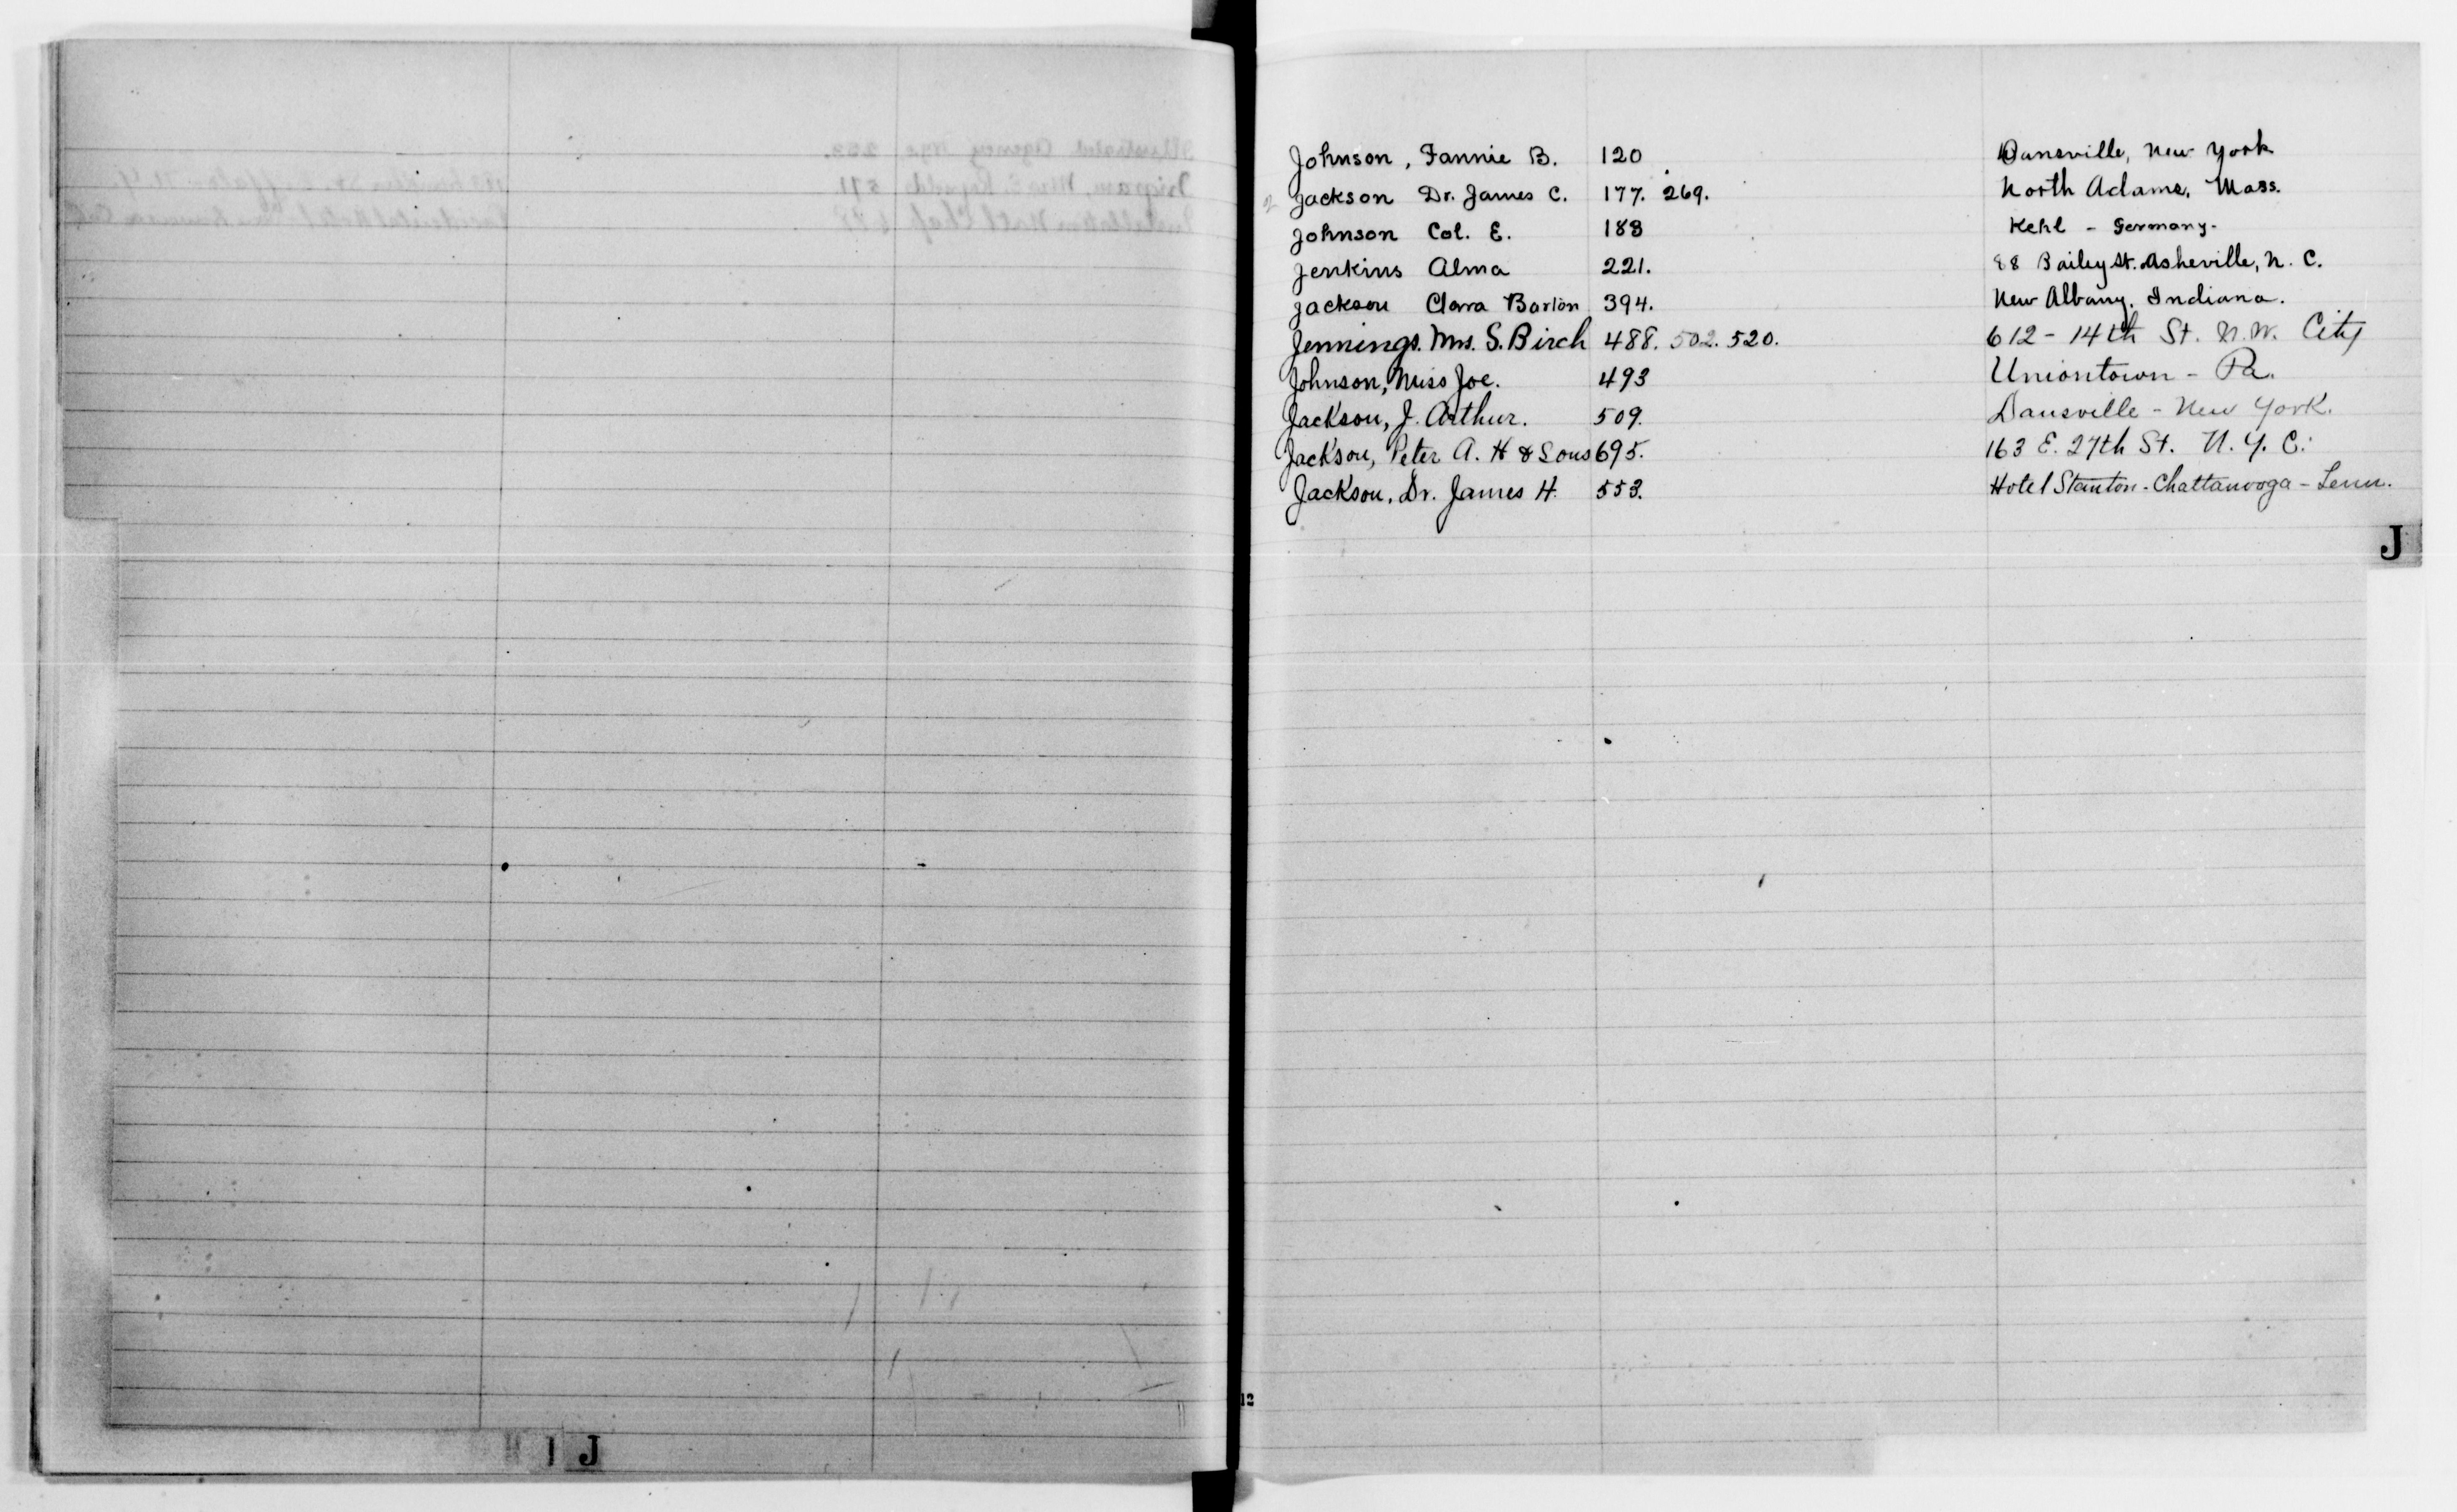 Johnson, Fannie B. 120 Dansville, New York
2 Jackson Dr. James C. 177. 269. North Adams, Mass.
Johnson Col. E. 183 Kehl - Germany-
Jenkins Alma 221. 88 Bailey St. Asheville, N. C.
Jackson Clara Barton 394. New Albany, Indiana.
Jennings. Mrs. S. Birch 488. 502. 520. 612 - 14th St. N.W. City
Johnson, Miss Joe. 493 Uniontown - Pa.
Jackson, J. Arthur. 509. Dansville - New York.
Jackson, Peter A. H & Sons 695. 163 E. 27th St. N. Y. C.
Jackson, Dr. James H. 553. Hotel Stanton - Chattanooga - Tenn.
J
12
I J